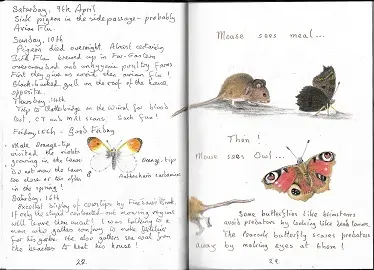 Saturday, 9th April
Sick pigeon in the side passage – probably
Avian Flu.
Sunday, 10th
Pigeon died overnight. Almost certainly
Bird Flu brewed up in Far-Eastern
overcrowded and unhygienic poultry farms.
First they give us covid then avian flu!
Black-backed gull on the roof of the house
opposite.
Thursday, 14th
Trip to Clatterbridge on the Wirral for blood
test, CT and MRI scans. Such fun!
Friday, 15th – Good Friday
Male Orange-tip
visited the
growing in the lawn
Do not mow the lawn
too close or too often
in the spring!
Orange-tip
Anthocharis cardamines
Saturday, 16th
Excellent display of cowslips by
If only the stupid contracted-out mowing regime
well leave them uncut! I was talking to a
man who gathers comfrey to make
for his garden. He also gathers sea coal from
the beaches to heat his house!
28
Mouse sees meal...
Then!
Mouse sees Owl...
Some butterflies like brimstones
avoid predators by looking like dead leaves.
The Peacock butterfly scares predators
away by making eyes at them!
29